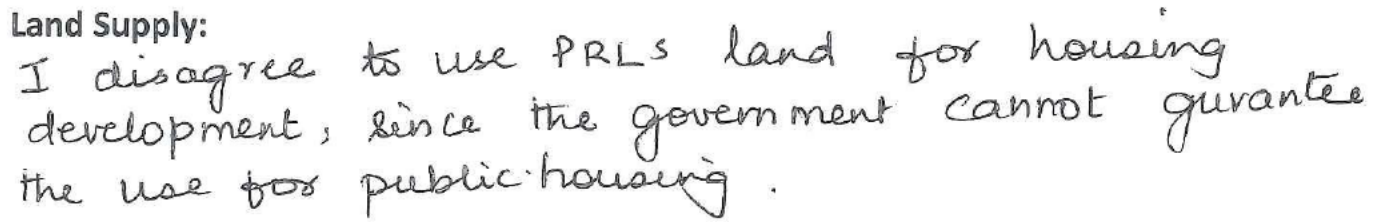 Land Supply:
I disagree to use PRLS land for housing
development, since the government cannot gurantee
the use for public housing.